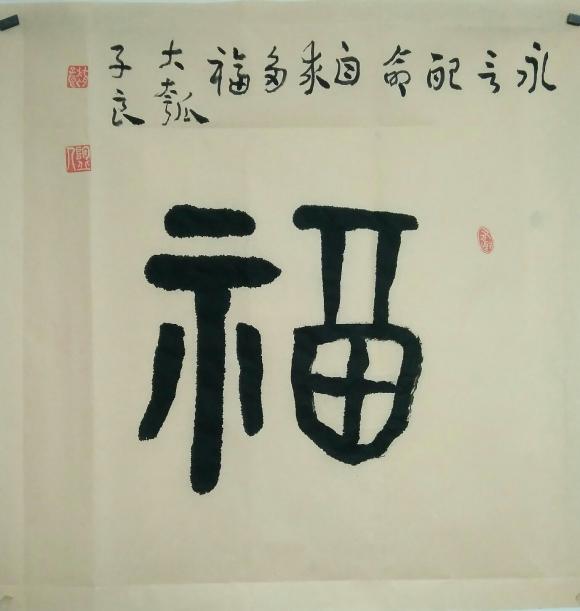 永言配命自求多福
大瓠
子良
福